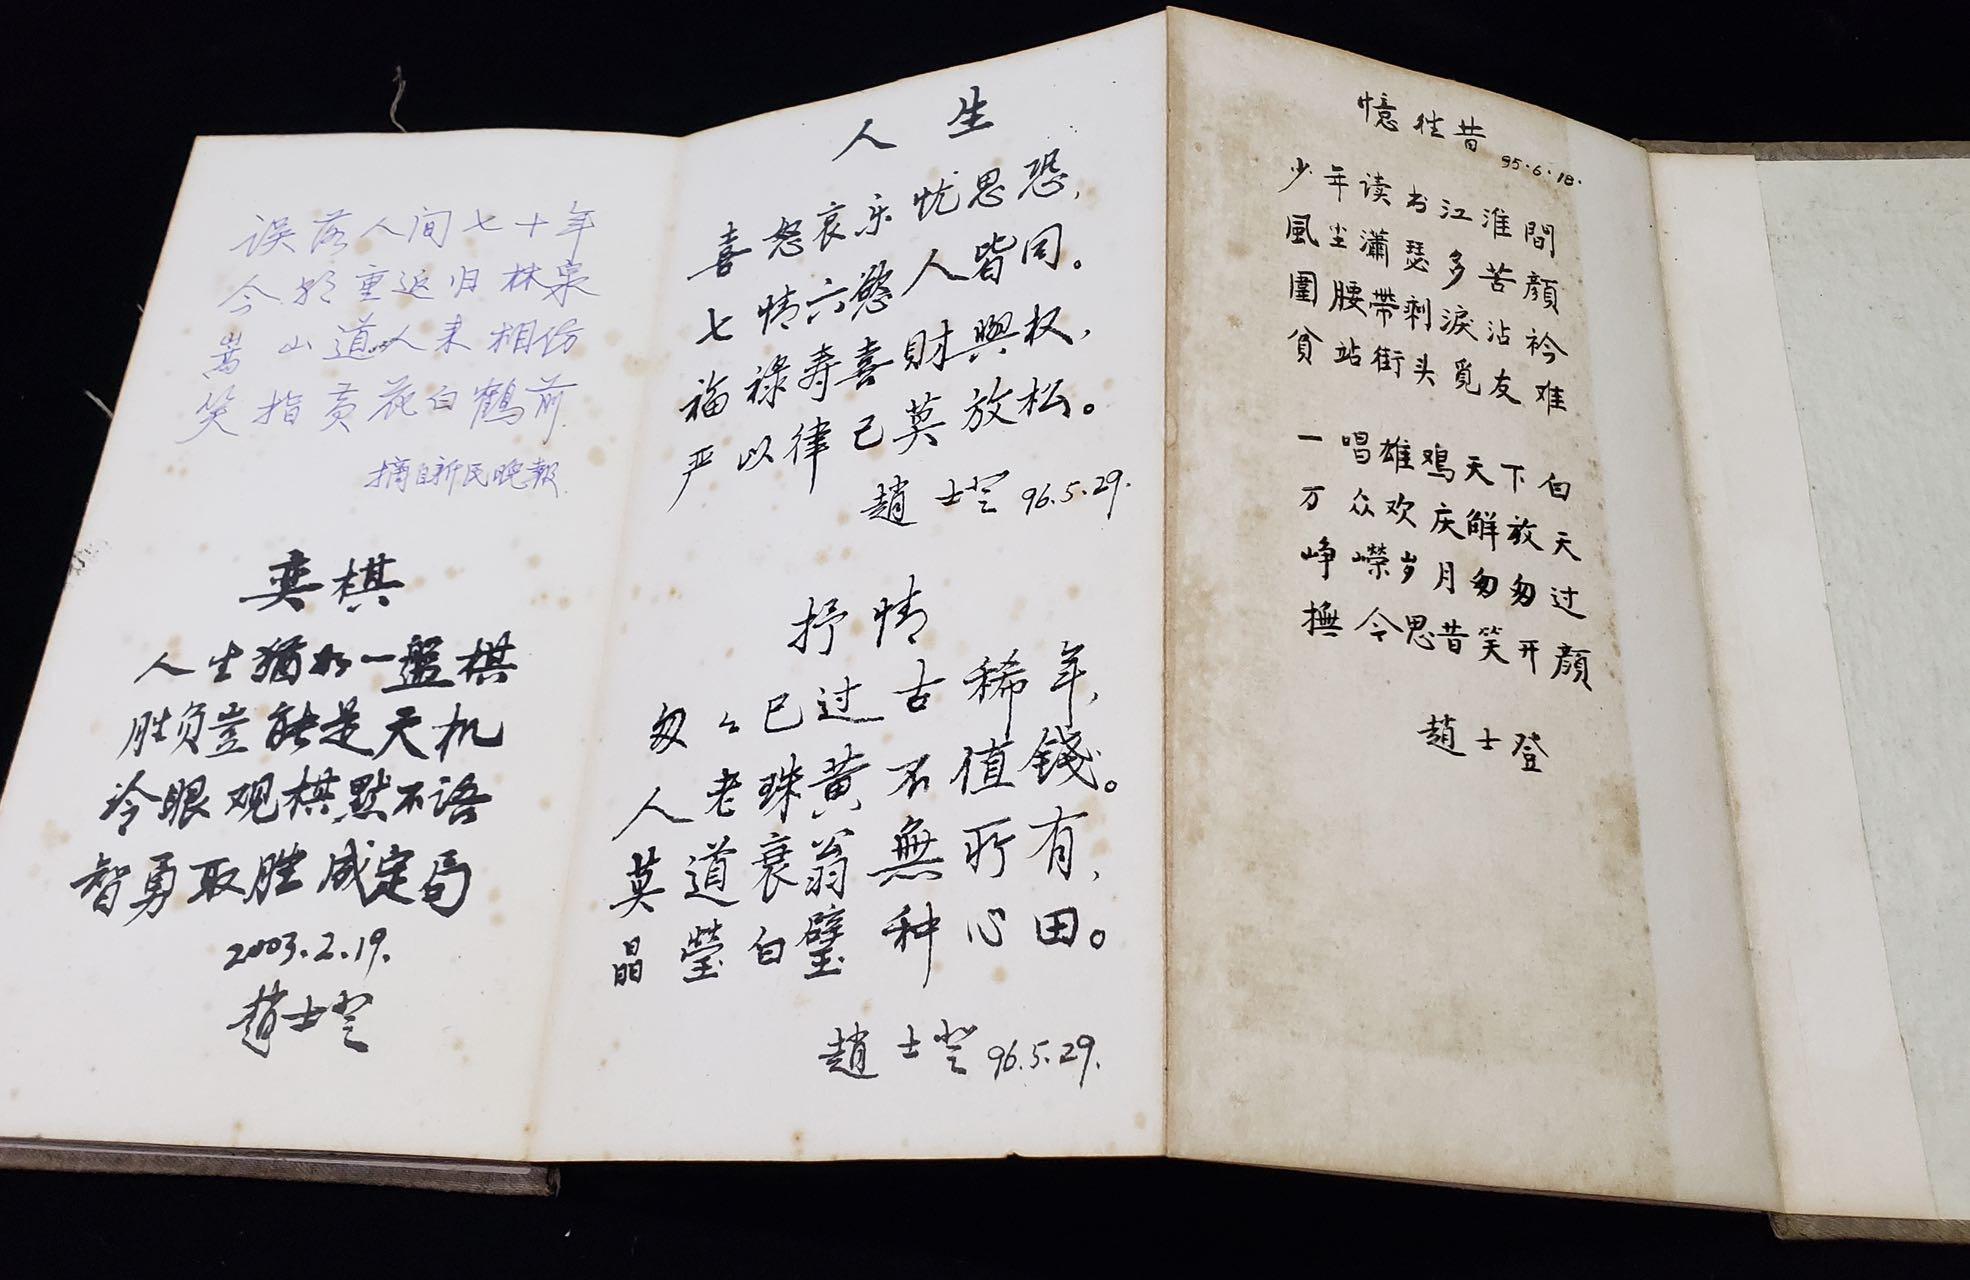 误落人间七十年
今朝重返旧林泉
嵩山道人来相访
笑指黄花白鹤前
摘自新民晚报
奕棋
人生犹如一盤棋
胜负豈能是天机
冷眼观棋默不语
智勇取胜成定局
2003.2.19.
趙士登
人生
喜怒哀乐忧思恐，
七情六慾人皆同。
福禄寿喜财與权，
严以律己莫放松。
趙士登 96.5.29.
抒情
匆々已过古稀年，
人老珠黄不值錢。
莫道衰翁無所有，
晶瑩白璧种心田。
趙士登 96.5.29.
憶往昔
95.6.18.
少年读书江淮間
風尘瀟瑟多苦顔
圍腰帶剩淚沾衿
貧站街头覓友难
一唱雄鸡天下白
万众欢庆解放天
峥嶸岁月匆匆过
撫今思昔笑开顔
趙士登